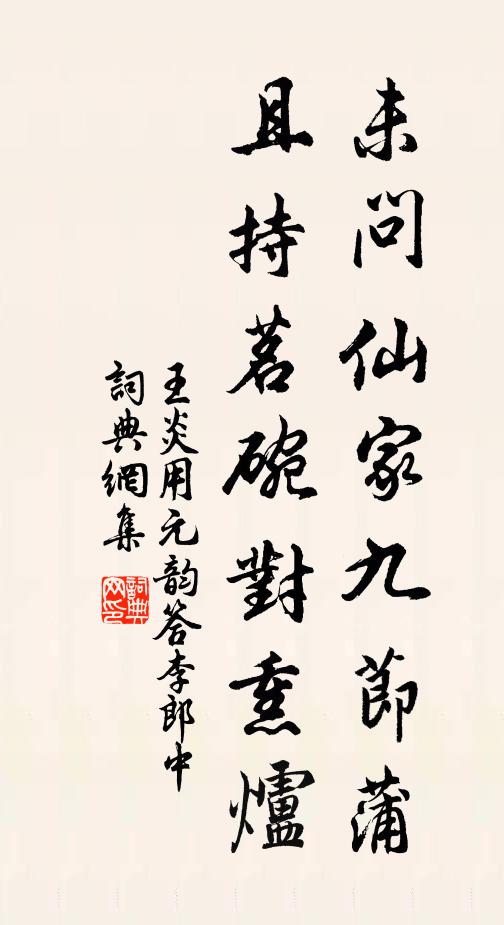 未問仙家九節蒲
且持茗碗對熏爐
王炎用元韵答李郎中
詞典網集
詞典網印